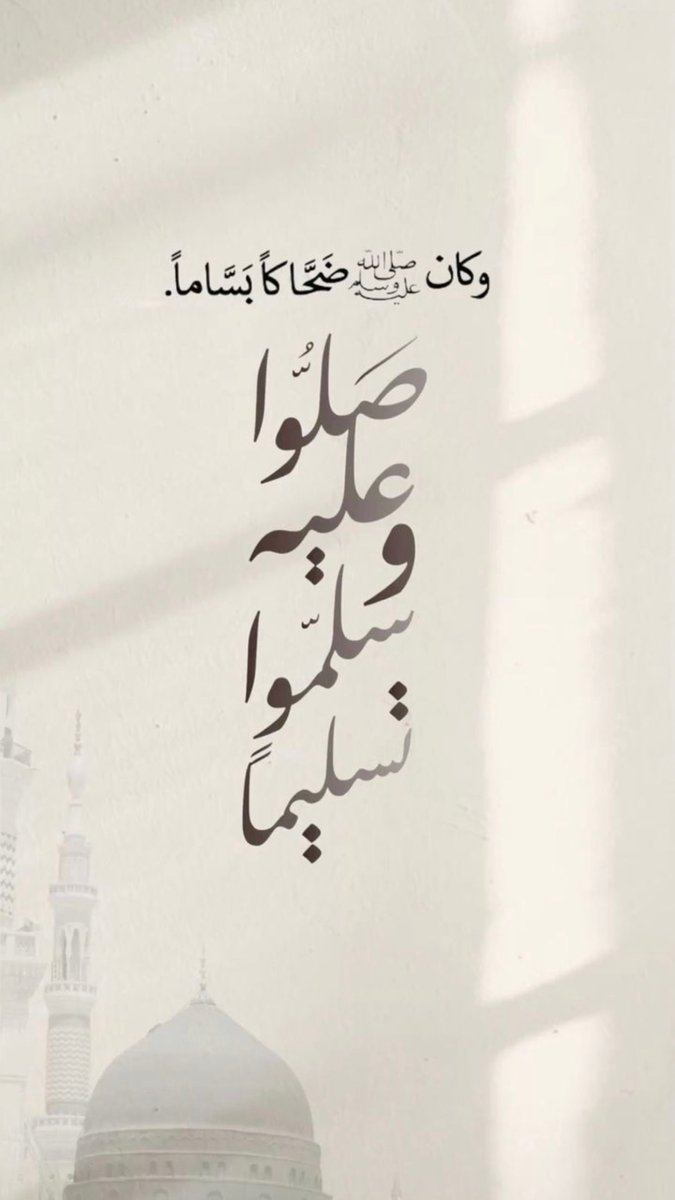 وكان ﷺ ضَحَّاكاً بَسَّاماً.
صَلُّوا
عليه
و
سلّموا
تسليماً